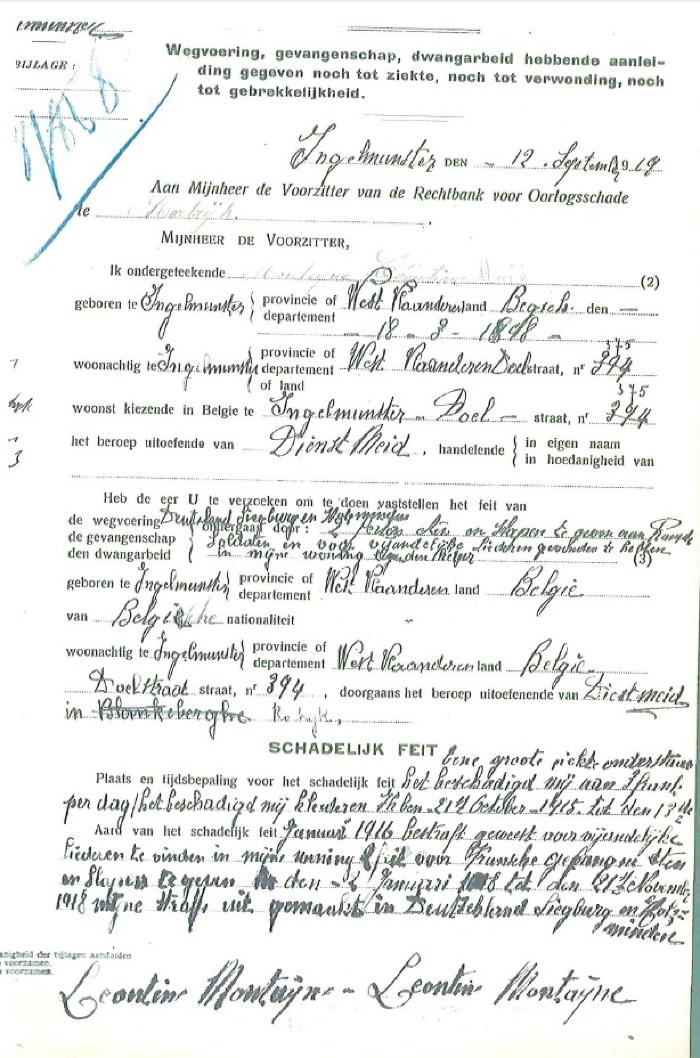 BIJLAGE :
Wegvoering, gevangenschap, dwangarbeid hebbende aanlei-
ding gegeven noch tot ziekte, noch tot verwonding, noch
tot gebrekkelijkheid.
Ingelmunster DEN - 12 September 1919
Aan Mijnheer de Voorzitter van de Rechtbank voor Oorlogsschade
te Kortrijk.
MIJNHEER DE VOORZITTER,
Ik ondergeteekende (2)
geboren te Ingelmunster provincie of departement West Vlaanderen land Belgich. den —
- 18 - 3 - 1898 -
375
woonachtig te Ingelmunster provincie of departement of land West Vlaanderen Doelstraat, nr 394
375
woonst kiezende in Belgie te Ingelmunster - Doel - straat, nr 394
het beroep uitoefende van Dienst Meid, handelende in eigen naam
in hoedanigheid van
Heb de eer U te verzoeken om te doen vaststellen het feit van
de wegvoering Deutsland Siegburg en
de gevangenschap ondergaan door: eten en slapen te geven aan
soldaten en voor vijandelijke liederen
den dwangarbeid in mijne woning (3)
geboren te Ingelmunster provincie of departement West Vlaanderen land Belgie
van Belgische nationaliteit
woonachtig te Ingelmunster provincie of departement West Vlaanderen land Belgie
Doelstraat straat, nr 394, doorgaans het beroep uitoefenende van Dienst meid
in Blankeberghe
SCHADELIJK FEIT eene groote
Plaats en tijdsbepaling voor het schadelijk feit het beschadigd mij aan 3 frank
per dag/het beschadigd mij kleederen Ik ben 21te October 1915 tot den 13de
Aard van het schadelijk feit Januari 1916 bestraft geweest voor vijandelijke
liederen te vinden in mijne woning voor Fransche gevangene eten
en slapen te geven den 2 Januari 1918 tot den 21te November
1918 mijne straffe uit gemaakt in Deutschland Siegburg en Holz-
minden
Leontine Montayne - Leontine Montayne